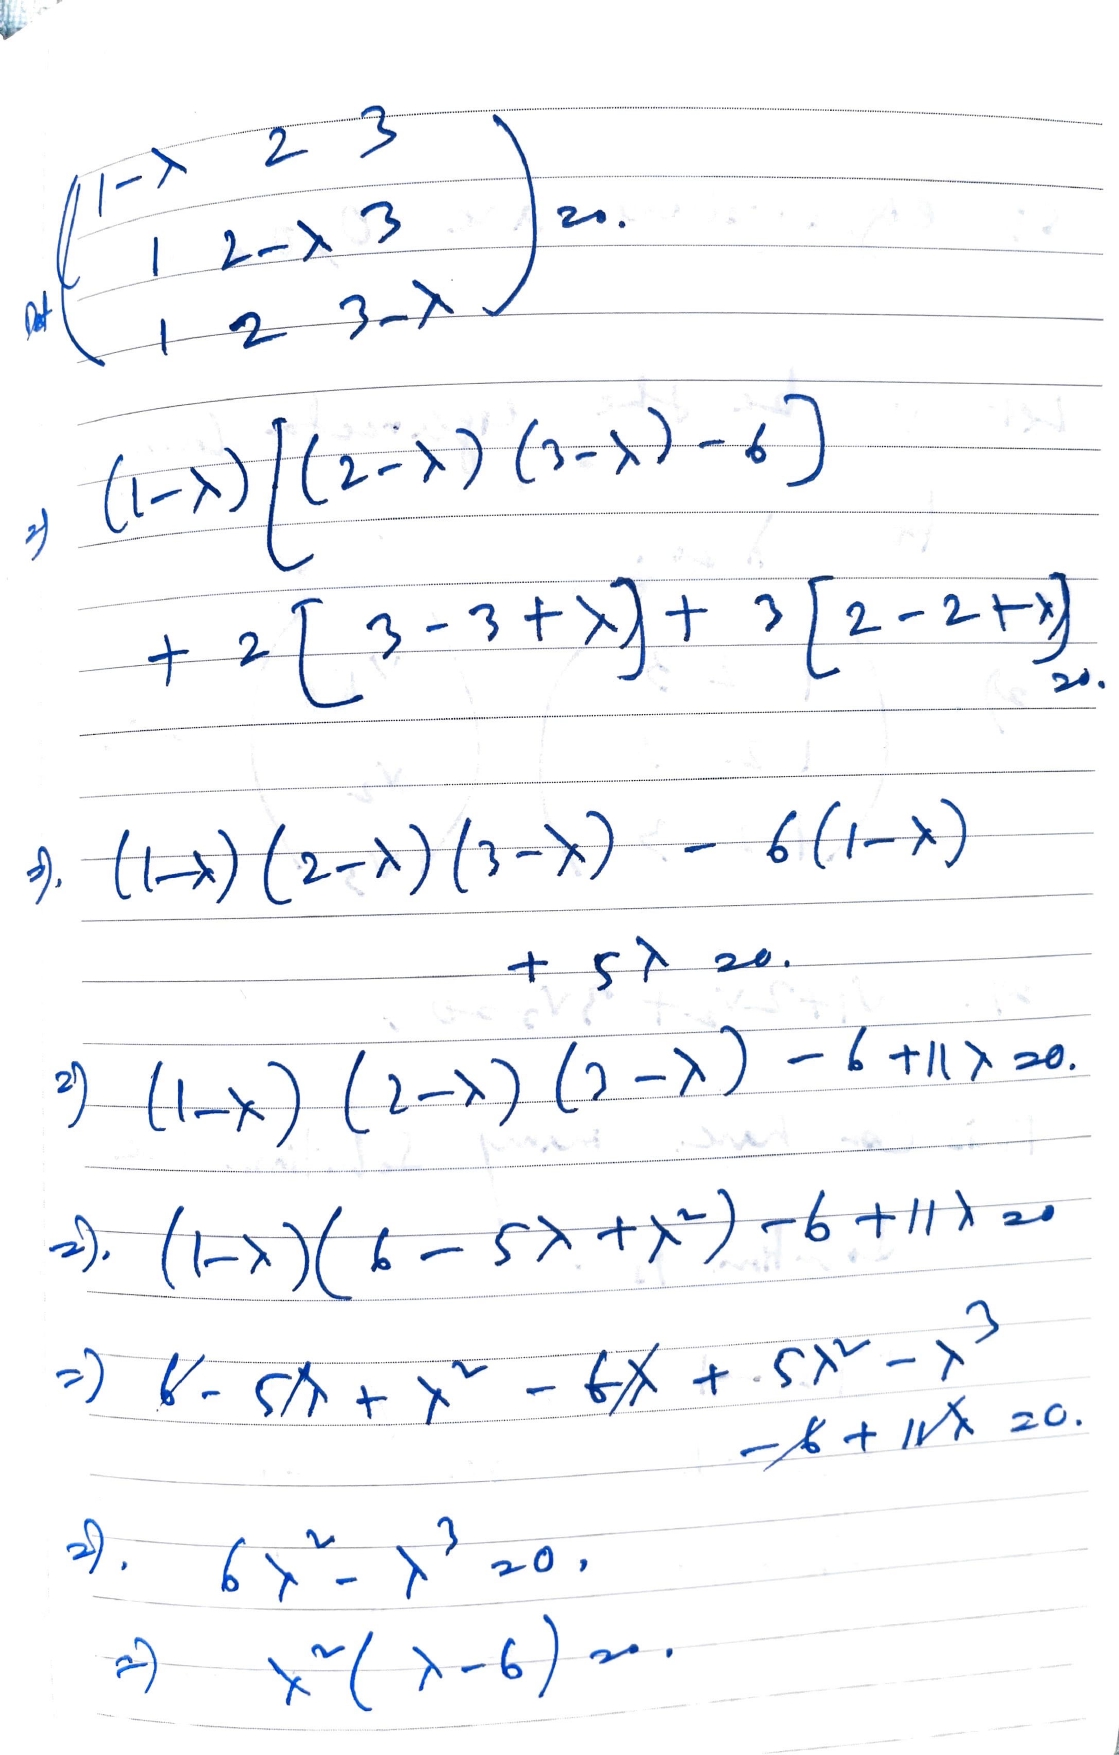 Det
(1-λ 2 3
1 2-λ 3
1 2 3-λ) =0.
⇒ (1-λ)[(2-λ)(3-λ)-6]
+ 2[3-3+λ]+ 3[2-2+λ] =0.
⇒. (1-λ)(2-λ)(3-λ) - 6(1-λ)
+ 5λ =0.
⇒ (1-λ)(2-λ)(3-λ) -6+11λ =0.
⇒. (1-λ)(6-5λ+λ²)-6+11λ =0
⇒ 6-5λ+λ²-6λ+5λ²-λ³
-6+11λ =0.
⇒. 6λ²-λ³ =0,
⇒ λ²(λ-6) =0.